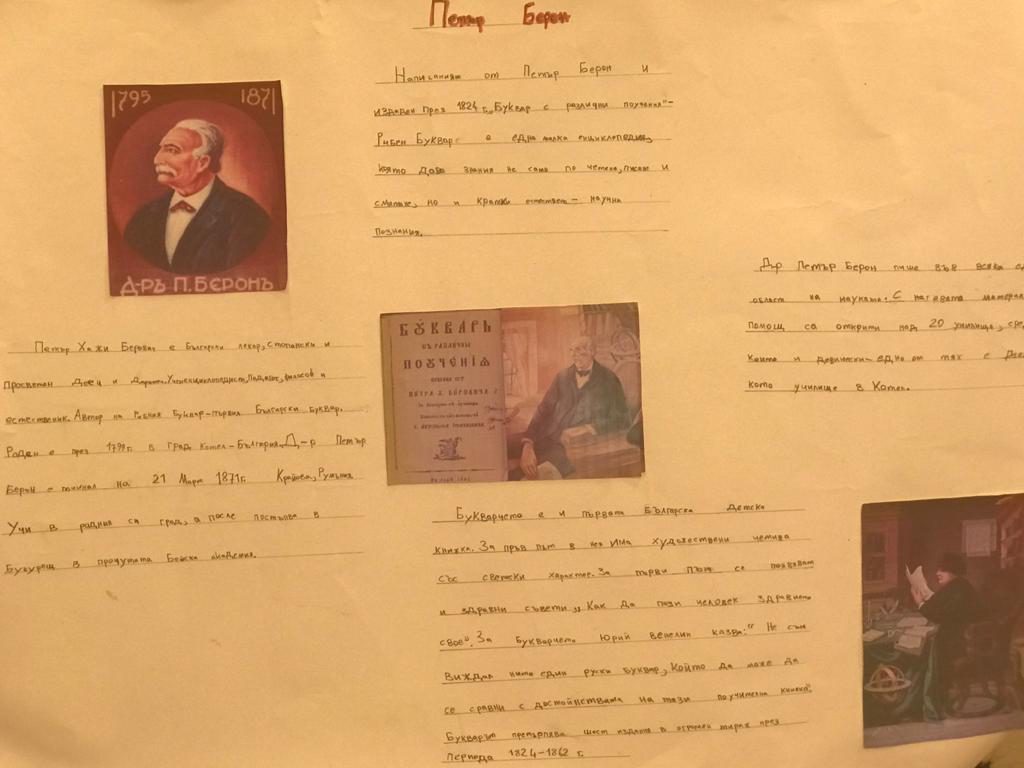 Петър Берон
1795 1871
Д-РЪ П. БЕРОНЪ
Написаният от Петър Берон и
издаден През 1824 г. „Буквар с различни поучения"-
Рибен Буквар е една малка енциклопедия,
която дава знания не само по четене, писане и
смятане, но и кратки естествен - научни
познания.
Петър Хажи Берович е Български лекар, Стопански и
Просветен Деец и философ и
естественик. Автор на Рибния Буквар-първия Български буквар.
Роден е през в град Котел-България. Д-р Петър
Берон е починал на 21 Март 1871г. Крайова, Румъния
Учи в родния си град, а после постъпва в
Букурещ в прочутата академия.
БУКВАРЬ
СЪ РАЗЛИЧНЫ
ПОУЧЕНІѦ
Букварчето е и първата Българска Детска
книжка. За пръв път в нея Има художествени четива
със светски характер. За първи Път се появяват
и здравни съвети „Как да пази человек здравието
свое". За Букварчето Юрий Венелин казва: "Не съм
Виждал нито един руски буквар, който да може да
се сравни с достойнствата на тази поучителна книжка".
Букварът претърпява шест издания в огромен тираж през
периода 1824-1862 г.
Петър Берон пише във всяка
област на науката. С неговата
помощ са открити над 20 училища,
които и девически-едно от тях е
кото училище в Котел.